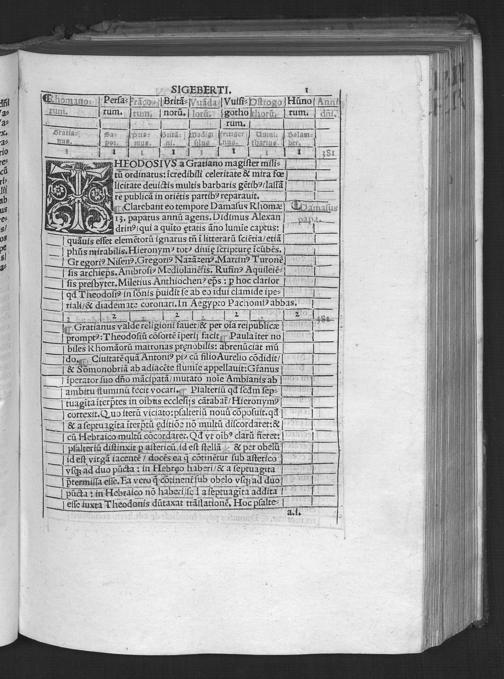 SIGEBERTI. 1
Rhomano- Persa- Frāco- Britā- Vuāda Vuisi- Ostrogo Hūno Anni
rum. rum. rum. norū. lorū. gotho thorū. rum. dñi.
rum.
1 1 1 1 1 1 381
THEODOSIVS a Gratiano magister mili-
tū ordinatus: īcredibili celeritate & mira fœ
licitate deuictis multis barbaris gētibꝰ/lassā
re publicā in oriētis partibꝰ reparauit.
Clarebant eo tempore Damasus Rhomæ Damasus
13. papatus annū agens. Didimus Alexan papa.
drinꝰ: qui a quito ętatis āno lumie captus:
quāuis esset elemētorū ignarus tñ ī litterarū sciētia/etiā
phūs mirabilis. Hieronymꝰ totꝰ diuię scripturę īcūbēs.
Gregoriꝰ Nisenꝰ. Gregoriꝰ Nazāzenꝰ. Martinꝰ Turonē
sis archieps. Ambrosiꝰ Mediolanēsis. Rufinꝰ Aquileiē-
sis presbyter. Miletius Anthiochenꝰ eps: p hoc clarior
qd Theodosiꝰ in sōnis puidit se ab eo idui clamide ipe-
riali/& diademate coronari. In Aegypto Pachomiꝰ abbas.
2 2 2 2 2 382
Gratianus valde religioni fauet/& per oīa reipublicæ
promptꝰ: Theodosiū cōsortē īperij facit. Paula iter no
biles Rhomāorū matronas prenobilis: abrenūciat mū
do. Ciuitatē quā Antoniꝰ piꝰ cū filio Aurelio cōdidit/
& Somonobriā ab adiacēte flumie appellauit: Gratianus
īperator suo dño mācipatā/mutato noie Ambianis ab
ambitu fluminū fecit vocari. Psalteriū qd scdm sep-
tuagīta iterptes in oibus ecclesijs cātabat̄/Hieronymꝰ
correxit. Quo iterū viciato: psalteriū nouū cōposuit. qd
& a septuagīta iterptū editiōe nō multū discordaret: &
cū Hebraico multū cōcordaret. Qd vt oibꝰ clarū fieret:
psalteriū distinxit p astericū. id est stellā & per obelū
id est virgā iacentē/ docēs ea q̄ cōtinētur sub asterico
vsq; ad duo pūcta: in Hebręo haberi/& a septuagīta
p̄termissa esse. Ea vero q̄ cōtinent̄ sub obelo vsq; ad duo
pūcta: in Hebraico nō haberi/sʒ a septuagīta addita
esse iuxta Theodonis dūtaxat trāslationē. Hoc psalte-
a.i.